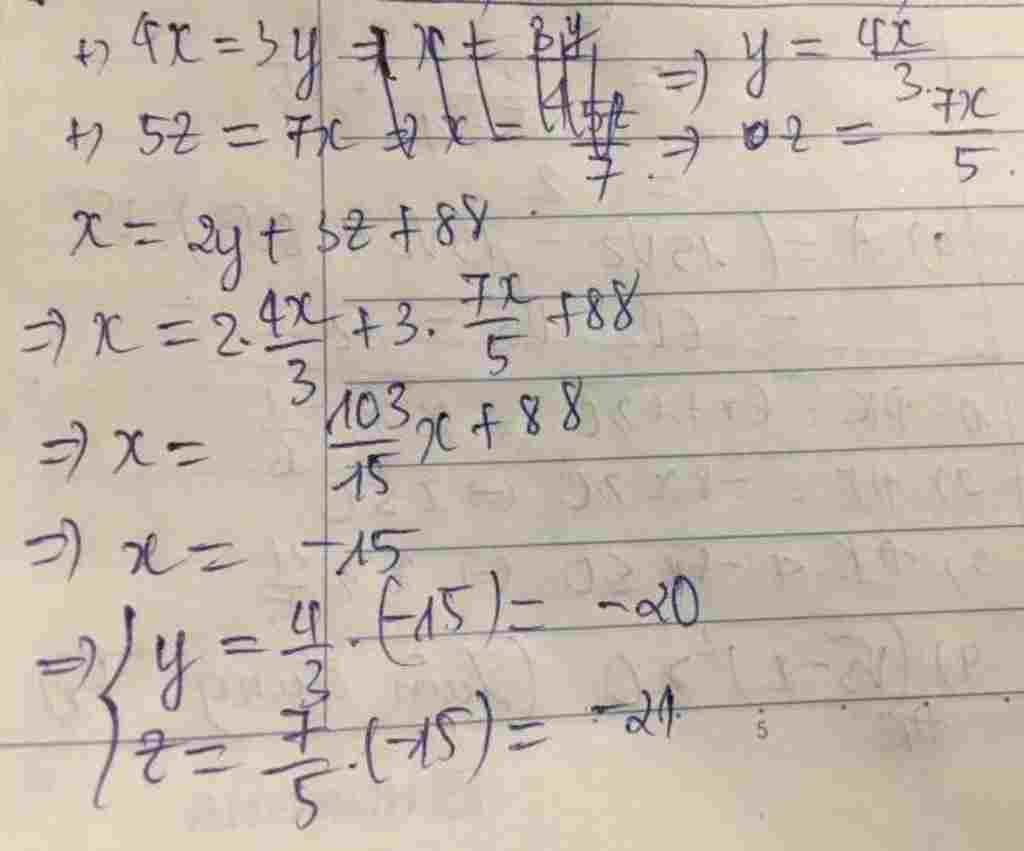 +) 4x = 3y => y = 4x/3.
+) 5z = 7x => z = 7x/5.
x = 2y + 3z + 88
=> x = 2. 4x/3 + 3. 7x/5 + 88
=> x = 103/15 x + 88
=> x = -15
=> { y = 4/3 . (-15) = -20
z = 7/5 . (-15) = -21
5